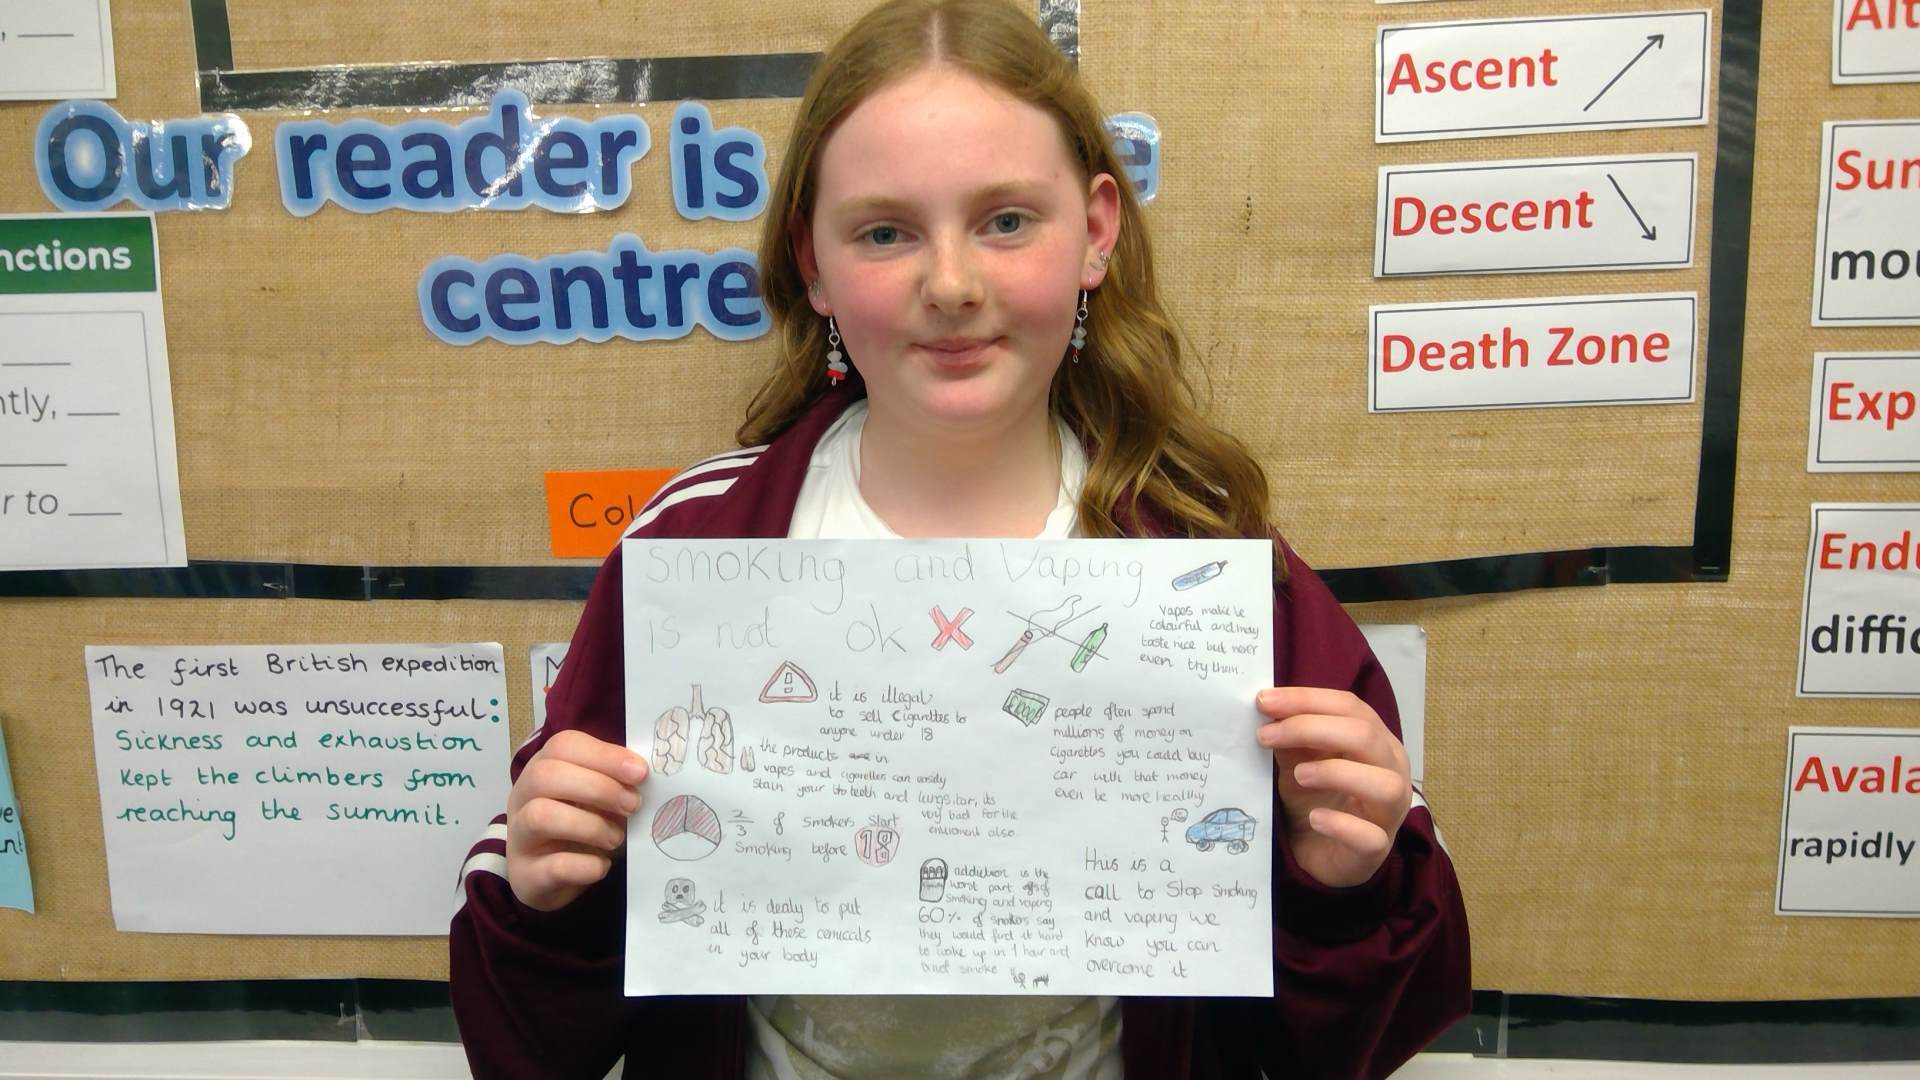 Our reader is
centre
nctions
ntly, ___
r to ___
Col
Ascent
Descent
Death Zone
Alt
Sun
mou
Exp
Endu
diffic
Avala
rapidly
The first British expedition
in 1921 was unsuccessful:
Sickness and exhaustion
kept the climbers from
reaching the summit.
Smoking and Vaping
is not ok
vapes make be
colourful and may
taste nice but never
even try them.
it is illegal
to sell cigarettes to
anyone under 18
the products in
vapes and cigarettes can easily
stain your teeth and lungs, tar, its
very bad for the
enviroment also
people often spend
millions of money on
cigarettes you could buy
car with that money
even be more healthy
2/3 of smokers start
smoking before 18
it is dealy to put
all of these cemicals
in your body
addiction is the
worst part of
smoking and vaping
60% of smokers say
they would find it hard
to wake up in 1 hour and
not smoke
this is a
call to stop smoking
and vaping we
know you can
overcome it